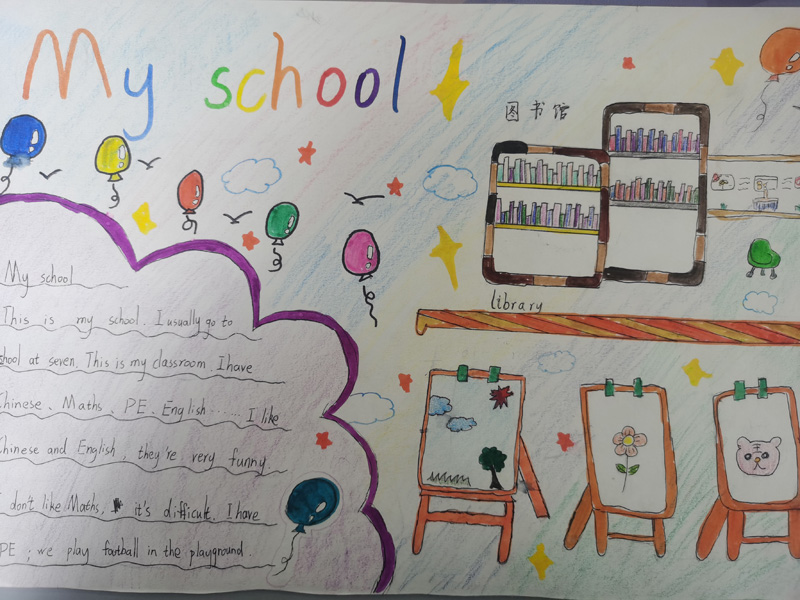 My school
图书馆
library
My school
This is my school. I usually go to
school at seven. This is my classroom. I have
Chinese、Maths、PE、English ······ I like
Chinese and English, they're very funny.
I don't like Maths, it's difficult. I have
PE ; we play football in the playground.